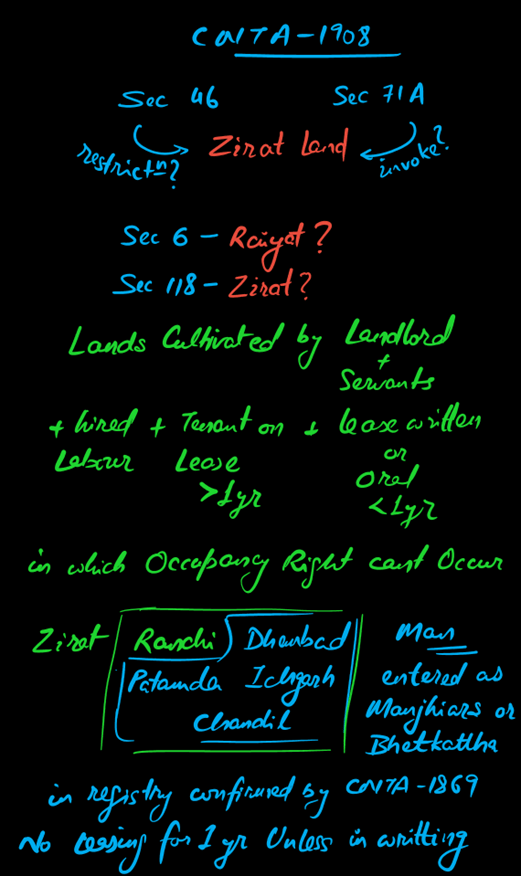 CNTA-1908
Sec 46 Sec 71A
restrictn? Zirat Land invoke?
Sec 6 - Raiyat?
Sec 118 - Zirat?
Lands Cultivated by Landlord
+
Servants
+ hired + Tenant on + lease written
Labour Lease or
>1yr Oral
<1yr
in which Occupancy Right cant Occur
Zirat Ranchi Dhanbad Man
Patamda Ichgarh entered as
Chandil Manjhiars or
Bhetkattha
in registry confirmed by CNTA-1869
No Leasing for 1 yr Unless in writting